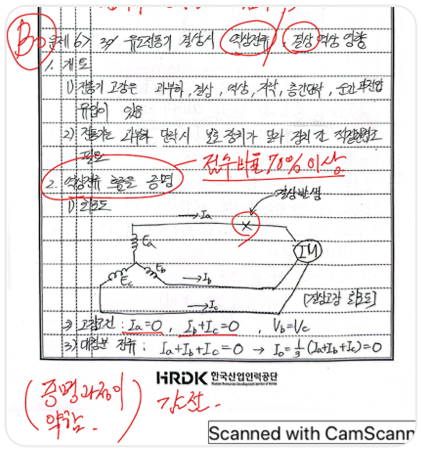 B0
문제 6> 3상 유도전동기 결상시 역상전류, 결상 역상 영향
1. 개요
1) 전동기 고장은 과부하, 결상, 역상, 지락, 층간단락, 순간 과전압
유입이 있음
2) 전동기는 과부하 단락시 보호 장치가
필요
2. 역상전류 흐름을 증명
점수비중 70% 이상
1) 회로도
결상발생
→ Ia
×
Ea
IM
Eb
→ Ib
Ec
→ Ic
[결상고장 회로도]
2) 고장조건 : Ia=0, Ib+Ic=0, Vb=Vc
3) 대칭분 전류 ; Ia+Ib+Ic=0 → Io=1/3(Ia+Ib+Ic)=0
HRDK 한국산업인력공단
(증명과정이
약감.) 감점.
Scanned with CamScann